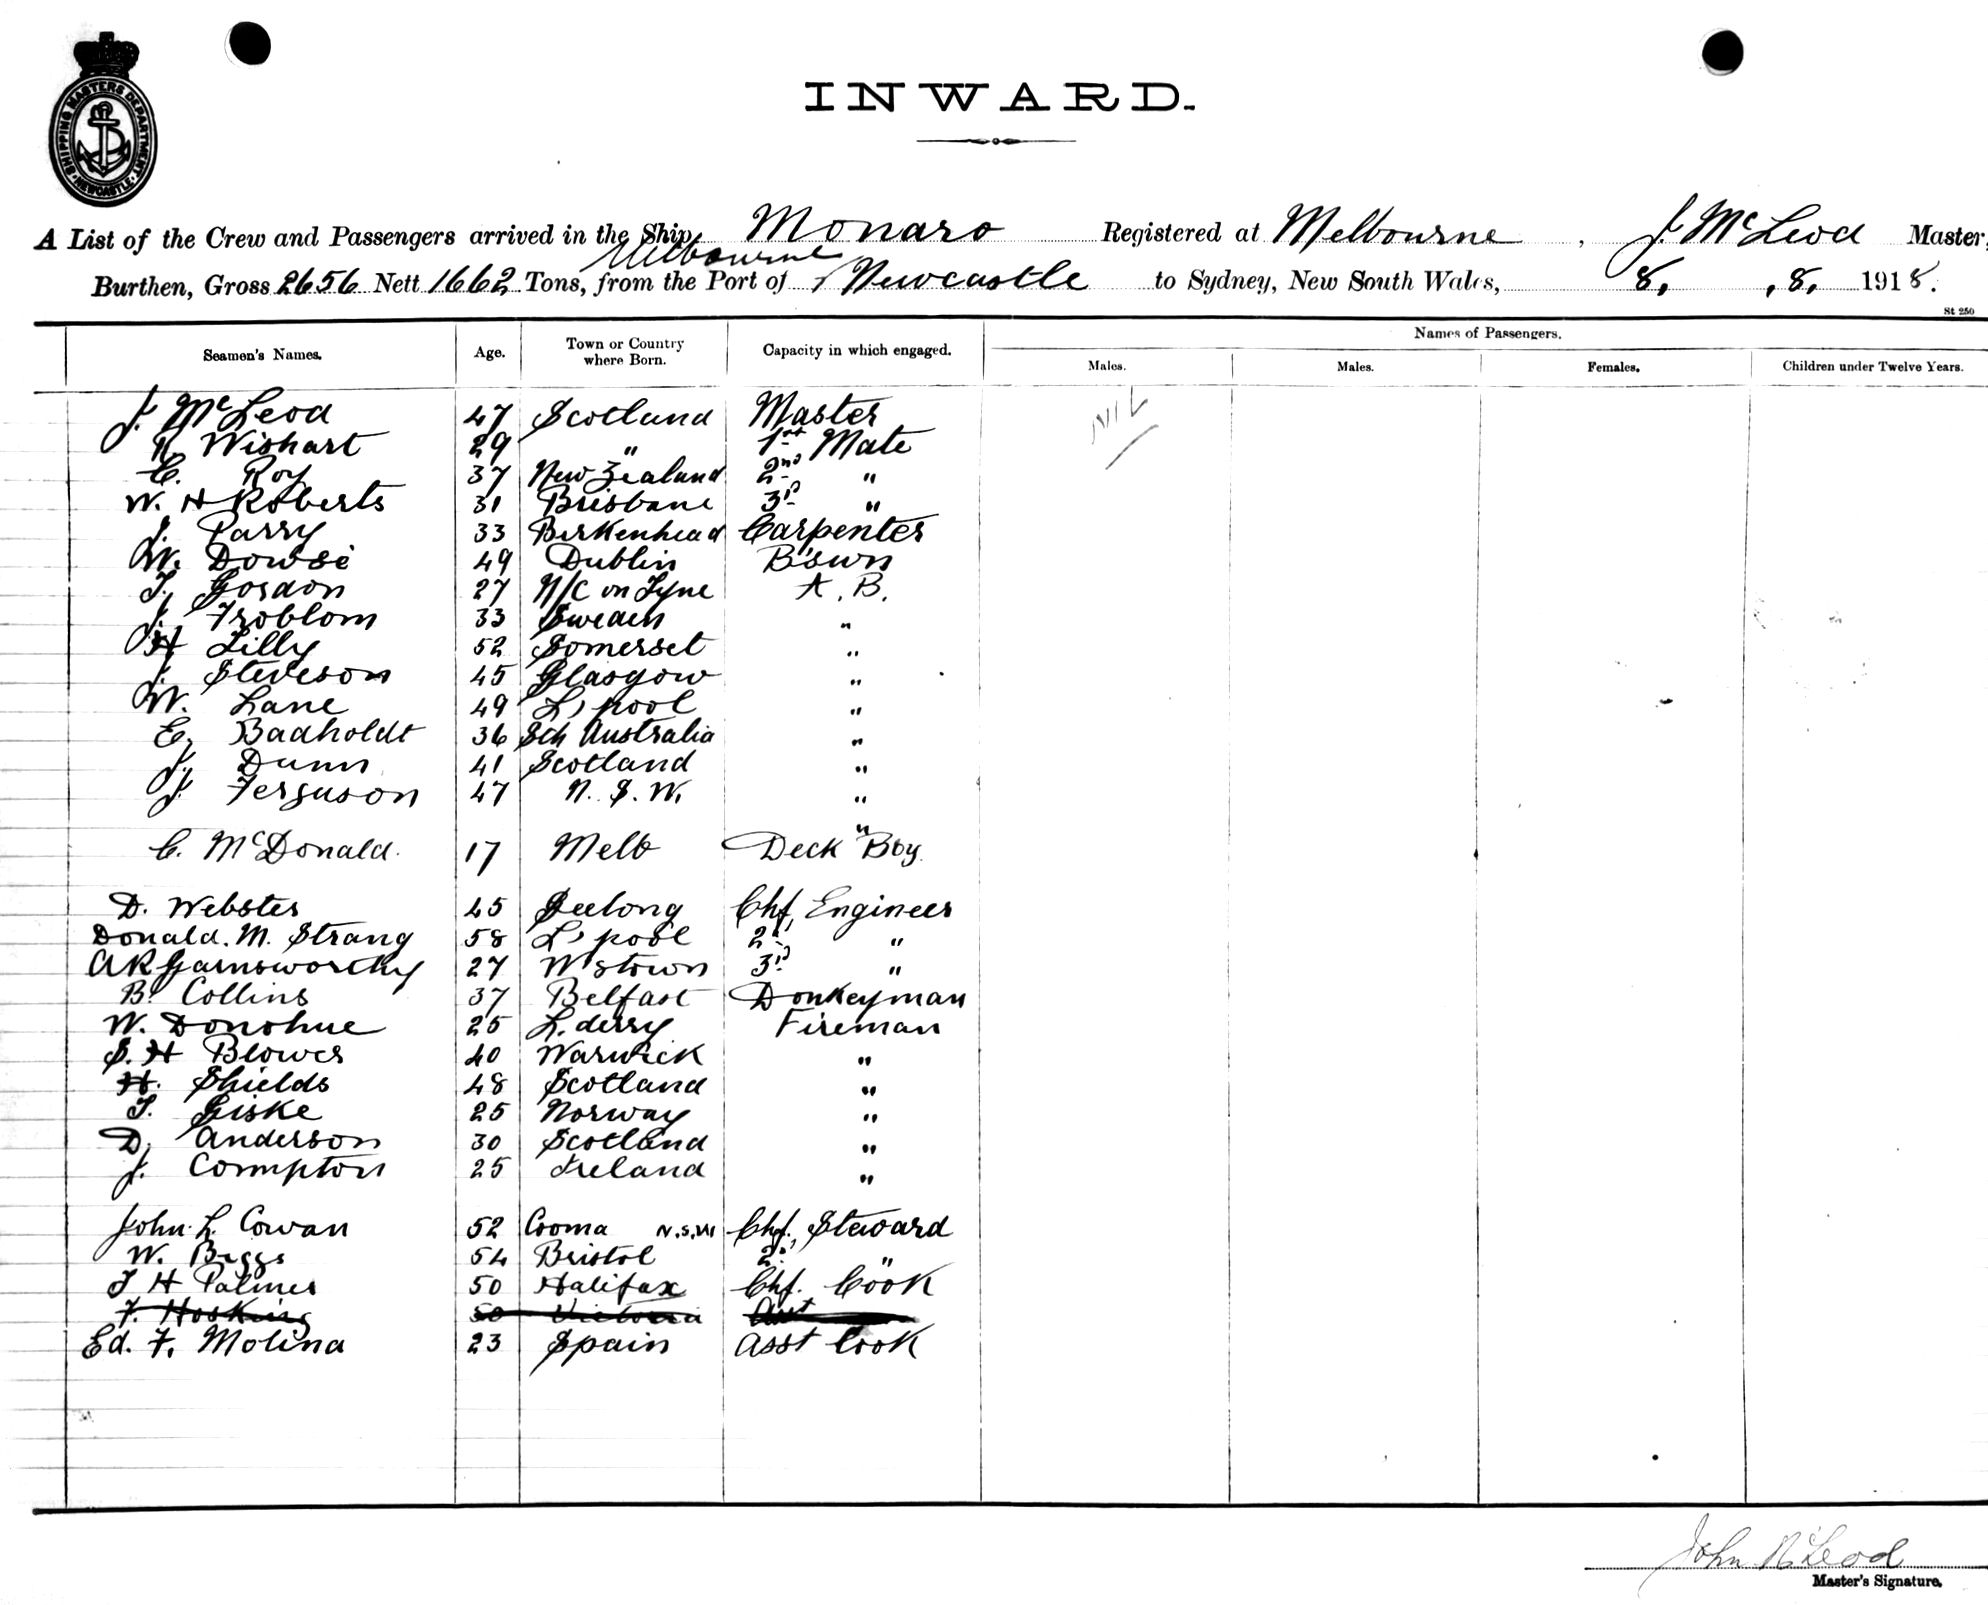 SHIPPING MASTERS DEPARTMENT
NEWCASTLE
INWARD.
A List of the Crew and Passengers arrived in the Ship Monaro Registered at Melbourne, J. McLeod Master,
Melbourne
Burthen, Gross 2656 Nett 1662 Tons, from the Port of Newcastle to Sydney, New South Wales, 8. , 8, 1918.
St 250
Seamen's Names. Age. Town or Country where Born. Capacity in which engaged. Names of Passengers.
Males. Males. Females. Children under Twelve Years.
J. McLeod 47 Scotland Master NIL
R Wishart 29 " 1st Mate
C. Roy 37 New Zealand 2nd "
W. H Roberts 31 Brisbane 3rd "
J. Parry 33 Birkenhead Carpenter
W. Dowse 49 Dublin B'swn
T. Gordon 27 N/C on Tyne A. B.
J. Froblom 33 Sweden "
H Lilly 52 Somerset "
J. Steveson 45 Glasgow "
W. Lane 49 L'pool "
E. Badholdt 36 Sth Australia "
J. Dunn 41 Scotland "
J. Ferguson 47 N. S. W. "
"
C. McDonald. 17 Melb Deck Boy
D. Webster 45 Geelong Chf, Engineer
Donald. M. Strang 58 L'pool 2nd "
AR Garnsworthy 27 W'stown 3rd "
B. Collins 37 Belfast Donkeyman
W. Donohue 25 L. derry Fireman
S. H Blower 40 Warwick "
H. Shields 48 Scotland "
T. Giske 25 Norway "
D. Anderson 30 Scotland "
J. Compton 25 Ireland "
John L. Cowan 52 Cooma N.S.W Chf, Steward
W. Biggs 54 Bristol 2nd "
T H Palmer 50 Halifax Chf. Cook
F. Hosking 50 Victoria Asst
Ed. F. Molina 23 Spain Asst Cook
John McLeod
Master's Signature.